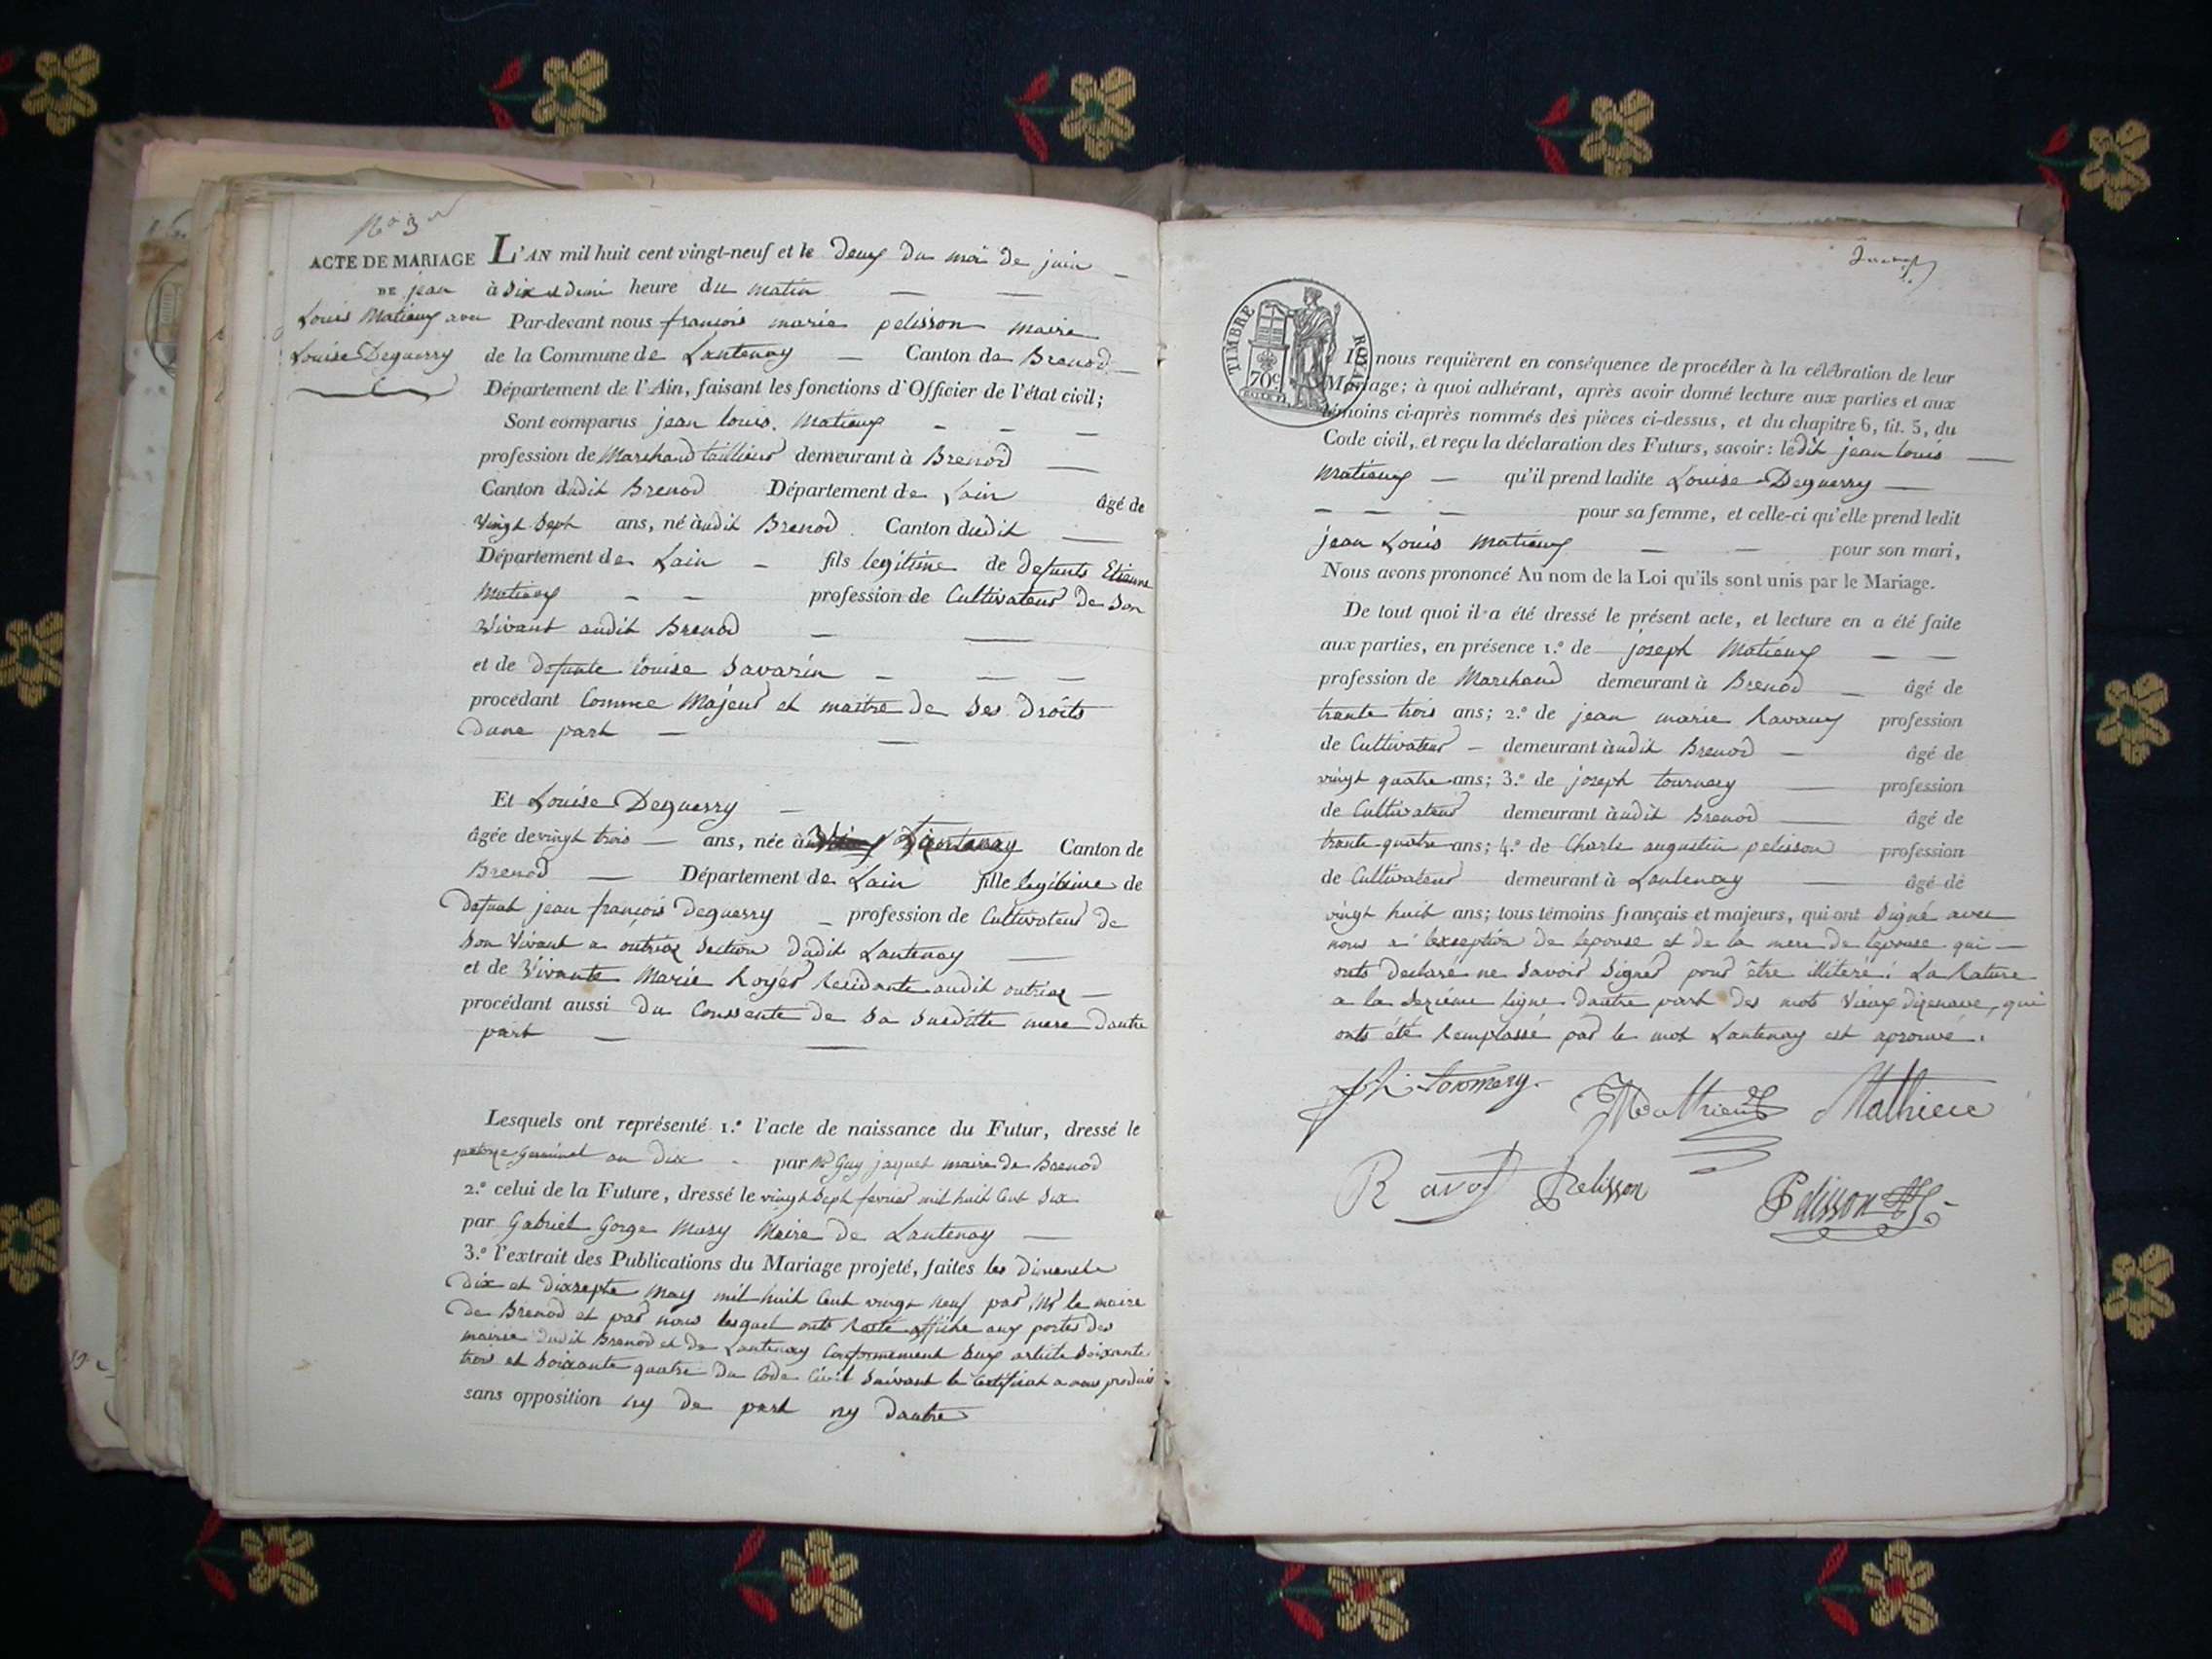 No 3
ACTE DE MARIAGE
DE jean
Louis Matieux avec
Louise Deguerry
L'AN mil huit cent vingt-neuf et le deux du moi de juin
à Six et demi heure du matin
Par-devant nous françois marie pelisson maire
de la Commune de Lantenay Canton de Brenod
Département de l'Ain, faisant les fonctions d'Officier de l'état civil;
Sont comparus jean louis Matieux
profession de Marchand taillieur demeurant à Brenod
Canton dudit Brenod Département de Lain âgé de
Vingt Sept ans, né àudit Brenod Canton dudit
Département de Lain fils legitime de defunts Etienne
Matieux profession de Cultivateur de Son
Vivant audit Brenod
et de defunte Louise Savarin
procédant Comme Majeur et maitre de Ses Droits
Dune part
Et Louise Deguerry
âgée de vingt trois ans, née à Lantenay Canton de
Brenod Département de Lain fille legitime de
Defunt jean françois Deguerry profession de Cultivateur de
Son Vivant a outriaz Section Dudit Lantenay
et de Vivante Marie Royer Residante audit outriaz
procédant aussi du Conssente de Sa Suditte mere Dautre
part
Lesquels ont représenté 1.º l'acte de naissance du Futur, dressé le
Germinal an Dix par Mr Guy jaquet maire de Brenod
2.º celui de la Future, dressé le vingt Sept fevrier mil huit Cent Six
par Gabriel Gorge Mary Maire de Lantenay
3.º l'extrait des Publications du Mariage projeté, faites les Dimanche
Dix et Dixsepte May mil huit Cent vingt neuf par Mr le maire
de Brenod et par nous lesquel onts Resté affiche aux portes des
mairie dudit Brenod et de Lantenay Conformement aux article Soixante
trois et Soixante quatre du Code Civil Suivant le Certificat a nous produit
sans opposition ny de part ny Dautre
TIMBRE ROYAL
70c.
Ils nous requièrent en conséquence de procéder à la célébration de leur
Mariage; à quoi adhérant, après avoir donné lecture aux parties et aux
témoins ci-après nommés des pièces ci-dessus, et du chapitre 6, tit. 5, du
Code civil, et reçu la déclaration des Futurs, savoir: ledit jean louis
Matieux qu'il prend ladite Louise Deguerry
pour sa femme, et celle-ci qu'elle prend ledit
jean Louis Matieux pour son mari,
Nous avons prononcé Au nom de la Loi qu'ils sont unis par le Mariage.
De tout quoi il a été dressé le présent acte, et lecture en a été faite
aux parties, en présence 1.º de joseph Matieux
profession de Marchand demeurant à Brenod âgé de
trante trois ans; 2.º de jean marie Ravaux profession
de Cultivateur demeurant àudit Brenod âgé de
vingt quatre ans; 3.º de joseph tournery profession
de Cultivateur demeurant àudit Brenod âgé de
trante quatre ans; 4.º de Charle augustin pelisson profession
de Cultivateur demeurant à Lantenay âgé de
vingt huit ans; tous témoins français et majeurs, qui ont Signé avec
nous a lexseption de lepouse et de la mere de lepouse qui
onts declaré ne Savoir Signer pour être illiteré: La Rature
a la Sezième ligne dautre part des mots Vieux dizenave, qui
onts été Remplassé par le mot Lantenay est aprouvé.
Mathieu Mathieu
Ravot Pelisson Pelisson